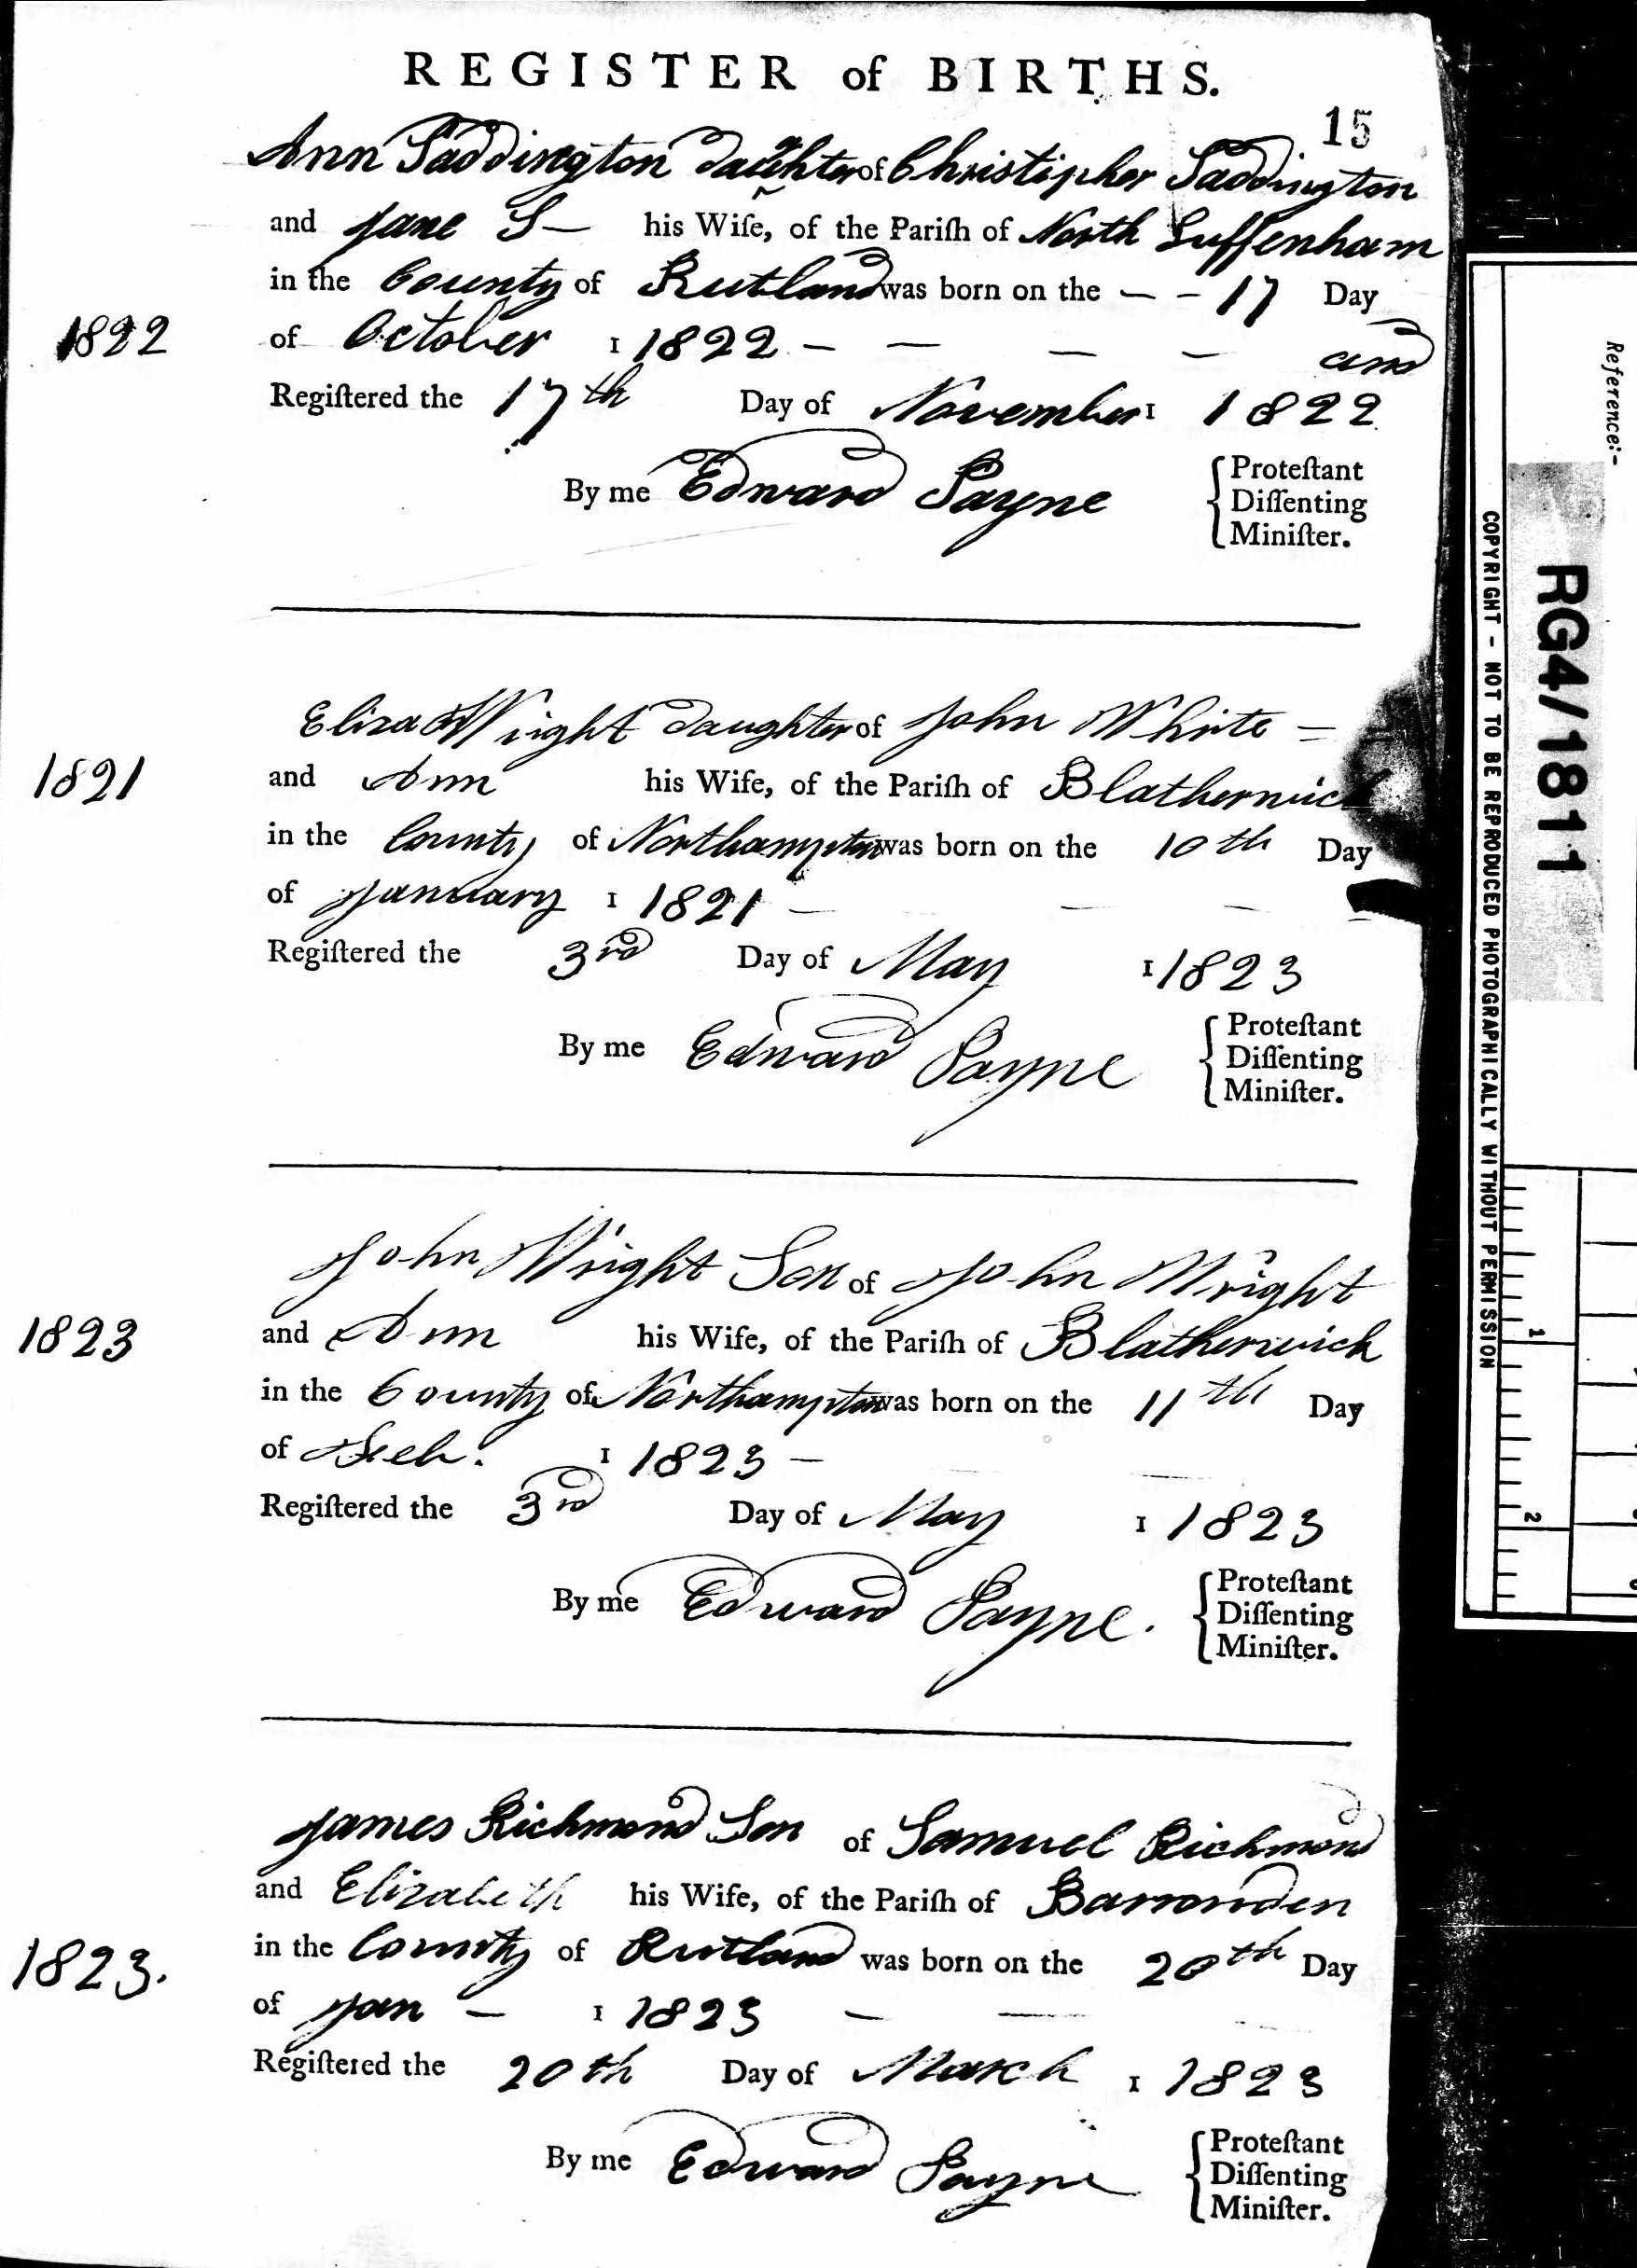 REGISTER of BIRTHS.
15
Ann Saddington daughter of Christipher Saddington
and Jane S— his Wife, of the Pariſh of North Luffenham
in the County of Rutland was born on the — – 17 Day
1822
of October 1 1822 — — — — and
Regiſtered the 17th Day of November 1 1822
By me Edward Payne
Proteſtant
Diſſenting
Miniſter.
Eliza Wright daughter of John White =
1821
and Ann his Wife, of the Pariſh of Blatherwick
in the County of Northampton was born on the 10th Day
of January 1 1821 — — — —
Regiſtered the 3rd Day of May 1 1823
By me Edward Payne
Proteſtant
Diſſenting
Miniſter.
John Wright Son of John Wright
1823
and Ann his Wife, of the Pariſh of Blatherwick
in the County of Northampton was born on the 11th Day
of Feb. 1 1823 —
Regiſtered the 3rd Day of May 1 1823
By me Edward Payne.
Proteſtant
Diſſenting
Miniſter.
James Richmond Son of Samuel Richmond
and Elizabeth his Wife, of the Pariſh of Barrowden
1823.
in the County of Rutland was born on the 20th Day
of Jan — 1 1823 — —
Regiſtered the 20th Day of March 1 1823
By me Edward Payne
Proteſtant
Diſſenting
Miniſter.
Reference:-
RG4/1811
COPYRIGHT - NOT TO BE REPRODUCED PHOTOGRAPHICALLY WITHOUT PERMISSION
1
2